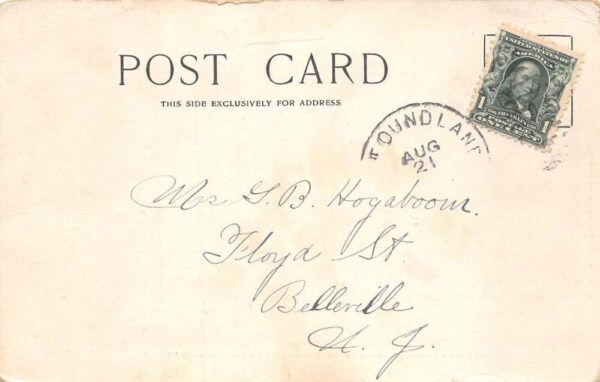 POST CARD
THIS SIDE EXCLUSIVELY FOR ADDRESS
UNITED STATES OF
AMERICA
1 FRANKLIN 1
POSTAGE
ONE CENT
OUNDLAN
AUG
21
Mrs G. B. Hogaboom.
Floyd St.
Belleville
N. J.